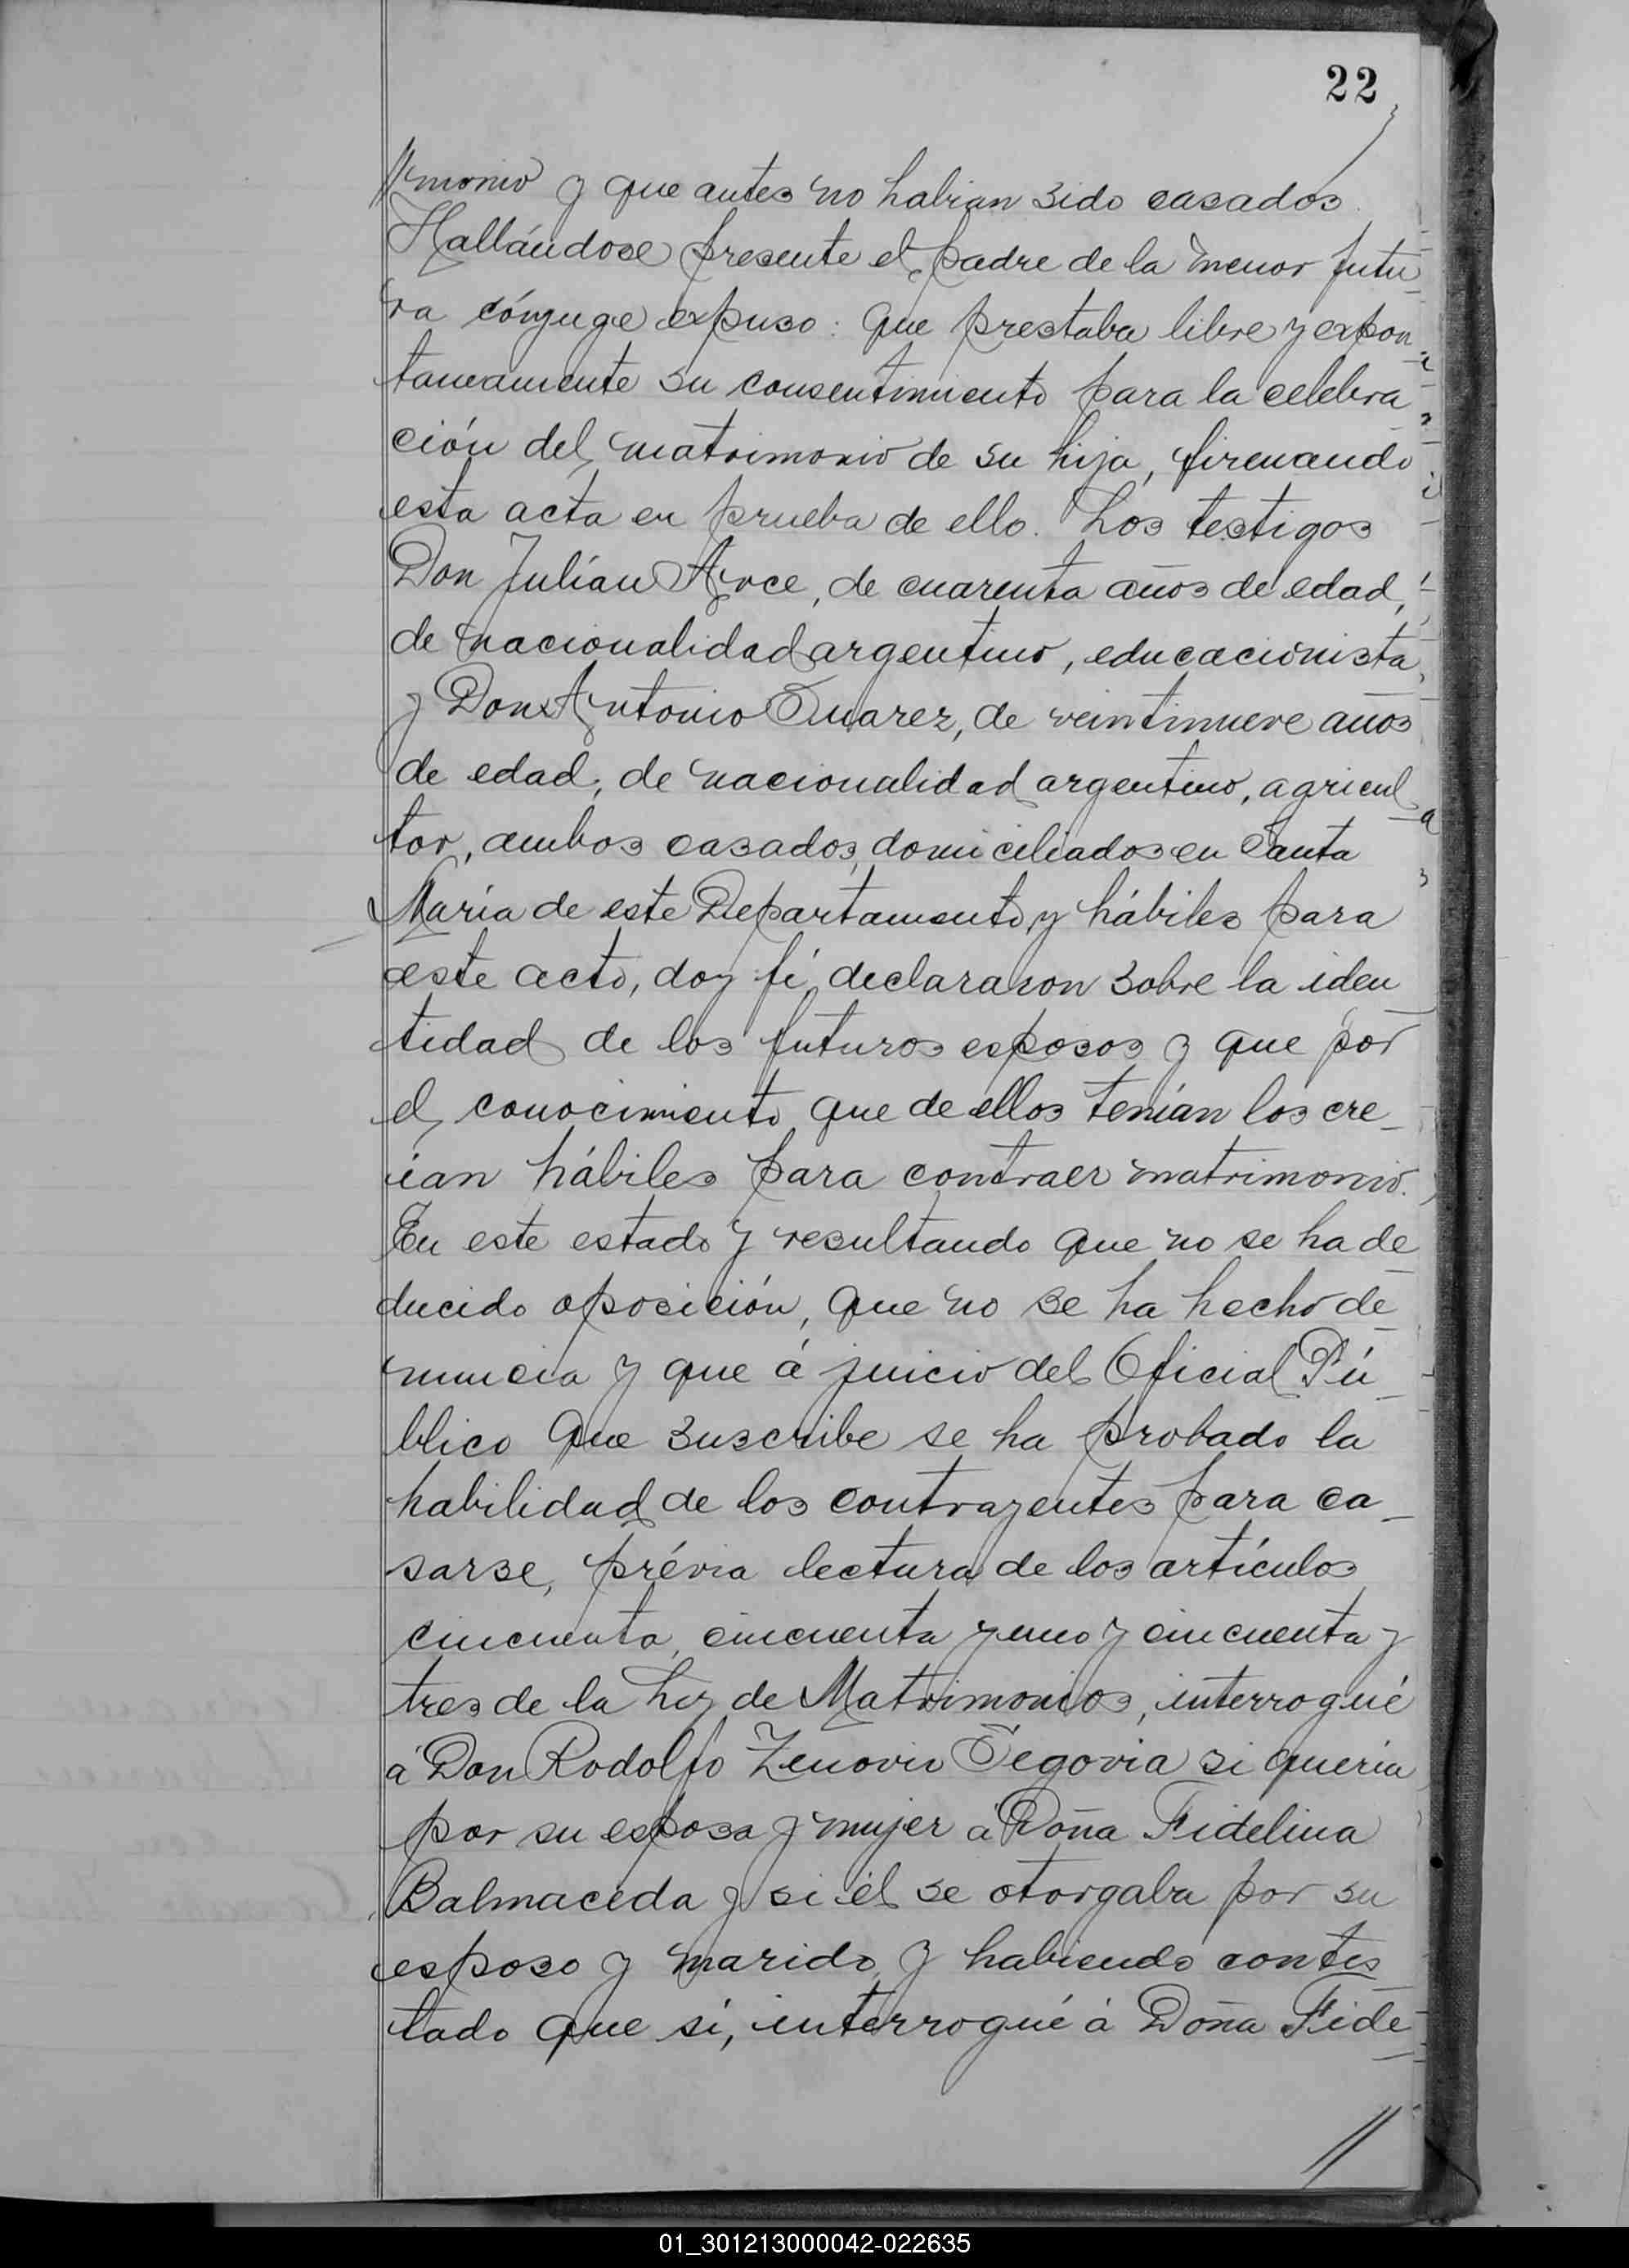 22
//monio y que antes no habian sido casados.
Hallándose presente el padre de la menor futu
ra cónyuge expuso: que prestaba libre y expon
taneamente su consentimiento para la celebra
ción del matrimonio de su hija, firmando
esta acta en prueba de ello. Los testigos
Don Julián Arce, de cuarenta años de edad,
de nacionalidad argentino, educacionista,
y Don Antonio Suarez, de veintinueve años
de edad, de nacionalidad argentino, agricul
tor, ambos casados, domiciliados en Santa
María de este Departamento, y hábiles para
este acto, doy fé, declararon sobre la iden
tidad de los futuros esposos y que por
el conocimiento que de ellos tenían los cre_
ian hábiles para contraer matrimonio.
En este estado y resultando que no se ha de_
ducido oposición, que no se ha hecho de_
nuncia y que á juicio del Oficial Pú_
blico que suscribe se ha probado la
habilidad de los contrayentes para ca_
sarse, prévia lectura de los artículos
cincuenta, cincuenta y uno y cincuenta y
tres de la Ley de Matrimonios, interrogué
á Don Rodolfo Zenovio Segovia si queria
por su esposa y mujer á Doña Fidelina
Balmaceda y si él se otorgaba por su
esposo y marido, y habiendo contes
tado que sí, interrogué á Doña Fide_
//
01_301213000042-022635